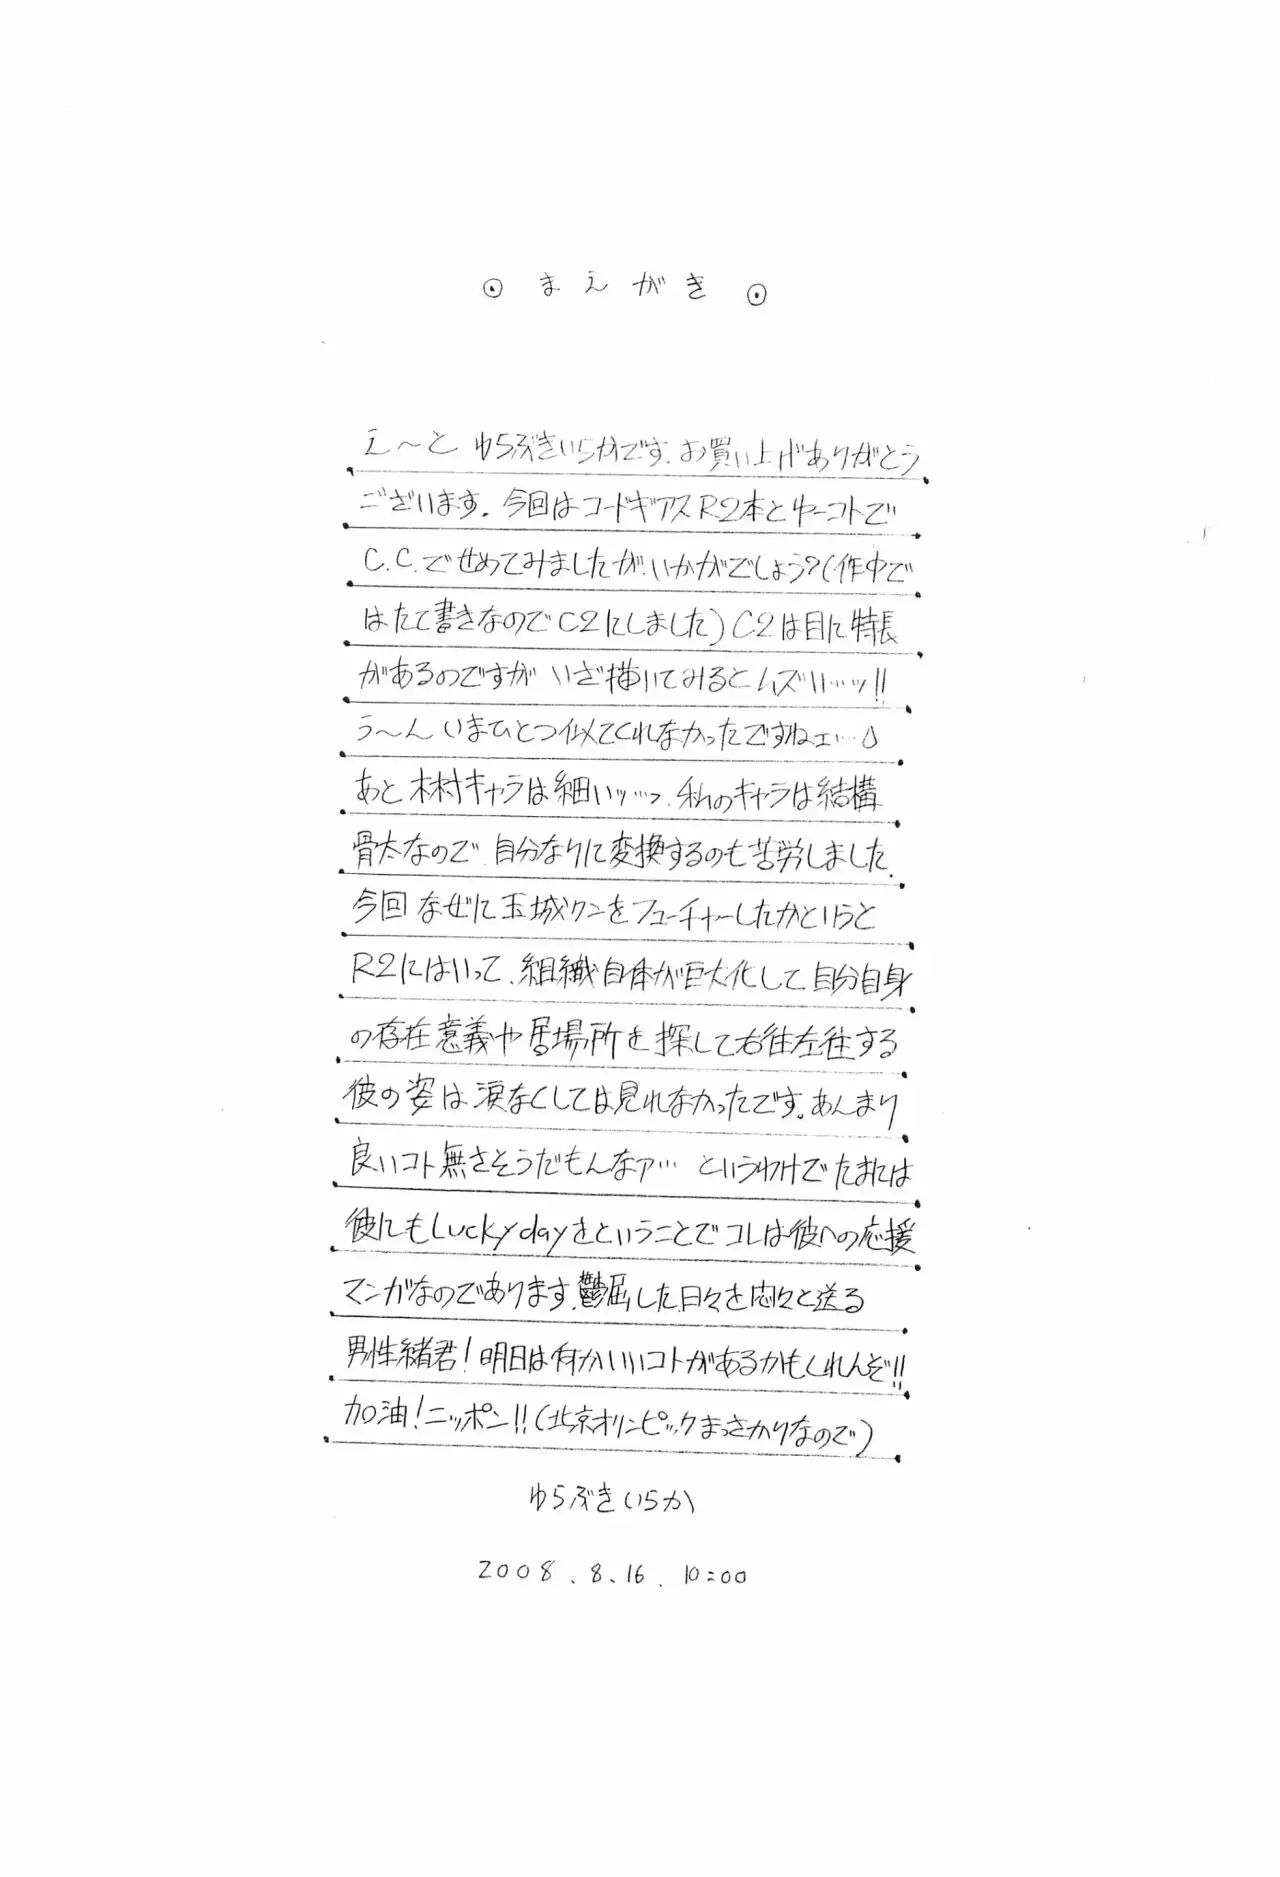 ⊙ まえがき ⊙
え〜と ゆらぶきいらかです。お買い上げありがとう
ございます。今回はコードギアスR2本とゆーコトで
C.C.でせめてみましたが、いかがでしょう?(作中で
はたて書きなのでC2にしました)C2は目に特長
があるのですが いざ描いてみるとムズい…ッ!!
う〜ん いまひとつ似てくれなかったですねェ…
あと木村キャラは細いッ…っ。私のキャラは結構
骨太なので、自分なりに変換するのも苦労しました。
今回 なぜに玉城クンをフューチャーしたかというと
R2にはいって、組織自体が巨大化して自分自身
の存在意義や居場所を探して右往左往する
彼の姿は涙なくしては見れなかったです。あんまり
良いコト無さそうだもんなァ… というわけでたまには
彼にもLucky dayをということでコレは彼への応援
マンガなのであります。鬱屈した日々を悶々と送る
男性緒君!明日は何かいいコトがあるかもしれんぞ!!
加油!ニッポン!!(北京オリンピックまっさかりなので)
ゆらぶきいらか
2008.8.16. 10:00